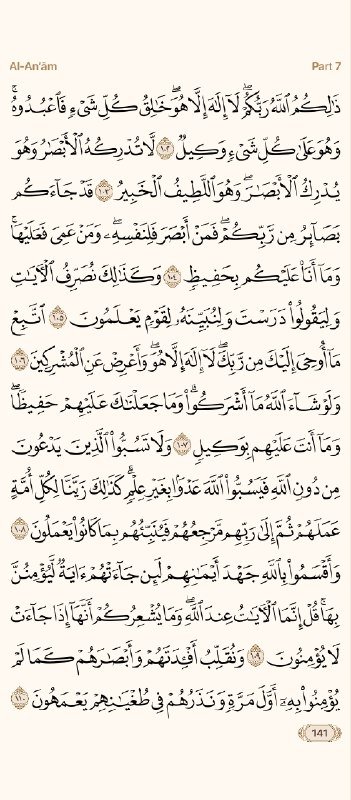 Al-An'ām Part 7
ذَٰلِكُمُ ٱللَّهُ رَبُّكُمْ ۖ لَآ إِلَٰهَ إِلَّا هُوَ ۖ خَٰلِقُ كُلِّ شَىْءٍ فَٱعْبُدُوهُ ۚ
وَهُوَ عَلَىٰ كُلِّ شَىْءٍ وَكِيلٌ ١٠٢ لَّا تُدْرِكُهُ ٱلْأَبْصَٰرُ وَهُوَ
يُدْرِكُ ٱلْأَبْصَٰرَ ۖ وَهُوَ ٱللَّطِيفُ ٱلْخَبِيرُ ١٠٣ قَدْ جَآءَكُم
بَصَآئِرُ مِن رَّبِّكُمْ ۖ فَمَنْ أَبْصَرَ فَلِنَفْسِهِۦ ۖ وَمَنْ عَمِىَ فَعَلَيْهَا ۚ
وَمَآ أَنَا۠ عَلَيْكُم بِحَفِيظٍ ١٠٤ وَكَذَٰلِكَ نُصَرِّفُ ٱلْءَايَٰتِ
وَلِيَقُولُوا۟ دَرَسْتَ وَلِنُبَيِّنَهُۥ لِقَوْمٍ يَعْلَمُونَ ١٠٥ ٱتَّبِعْ
مَآ أُوحِىَ إِلَيْكَ مِن رَّبِّكَ ۖ لَآ إِلَٰهَ إِلَّا هُوَ ۖ وَأَعْرِضْ عَنِ ٱلْمُشْرِكِينَ ١٠٦
وَلَوْ شَآءَ ٱللَّهُ مَآ أَشْرَكُوا۟ ۗ وَمَا جَعَلْنَٰكَ عَلَيْهِمْ حَفِيظًا ۖ
وَمَآ أَنتَ عَلَيْهِم بِوَكِيلٍ ١٠٧ وَلَا تَسُبُّوا۟ ٱلَّذِينَ يَدْعُونَ
مِن دُونِ ٱللَّهِ فَيَسُبُّوا۟ ٱللَّهَ عَدْوًۢا بِغَيْرِ عِلْمٍ ۗ كَذَٰلِكَ زَيَّنَّا لِكُلِّ أُمَّةٍ
عَمَلَهُمْ ثُمَّ إِلَىٰ رَبِّهِم مَّرْجِعُهُمْ فَيُنَبِّئُهُم بِمَا كَانُوا۟ يَعْمَلُونَ ١٠٨
وَأَقْسَمُوا۟ بِٱللَّهِ جَهْدَ أَيْمَٰنِهِمْ لَئِن جَآءَتْهُمْ ءَايَةٌ لَّيُؤْمِنُنَّ
بِهَا ۚ قُلْ إِنَّمَا ٱلْءَايَٰتُ عِندَ ٱللَّهِ ۖ وَمَا يُشْعِرُكُمْ أَنَّهَآ إِذَا جَآءَتْ
لَا يُؤْمِنُونَ ١٠٩ وَنُقَلِّبُ أَفْـِٔدَتَهُمْ وَأَبْصَٰرَهُمْ كَمَا لَمْ
يُؤْمِنُوا۟ بِهِۦٓ أَوَّلَ مَرَّةٍ وَنَذَرُهُمْ فِى طُغْيَٰنِهِمْ يَعْمَهُونَ ١١٠
141